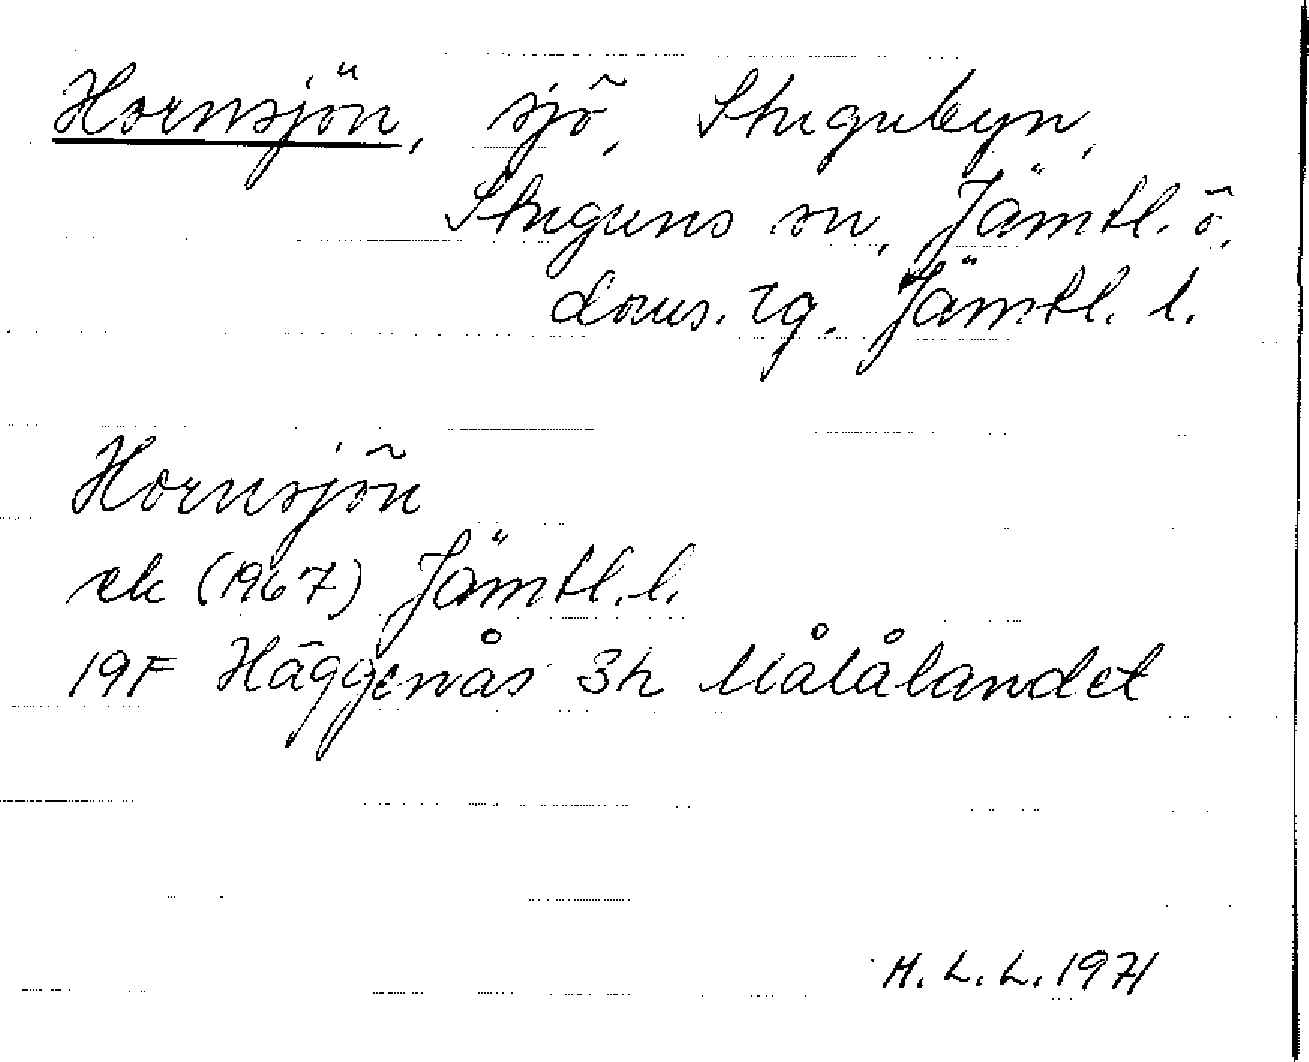 Hornsjön, sjö, Stugubyn,
Stuguns sn, Jämtl. ö.
doms. tg. Jämtl. l.
Hornsjön
ek (1967) Jämtl. l.
19F Häggenås 3h Målålandet
M. L. L. 1971